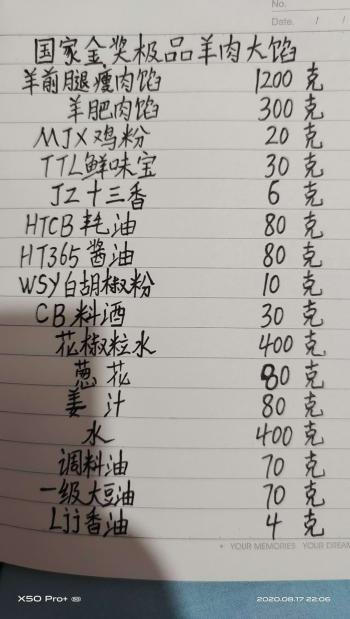 No.
Date. / /
国家金奖极品羊肉大馅
羊前腿瘦肉馅 1200 克
羊肥肉馅 300 克
MJX鸡粉 20 克
TTL鲜味宝 30 克
JZ十三香 6 克
HTCB耗油 80 克
HT365酱油 80 克
WSY白胡椒粉 10 克
CB料酒 30 克
花椒粒水 400 克
葱花 80 克
姜汁 80 克
水 400 克
调料油 70 克
一级大豆油 70 克
Ljj香油 4 克
• YOUR MEMORIES. YOUR DREAM
X50 Pro+ 5G 2020.08.17 22:06